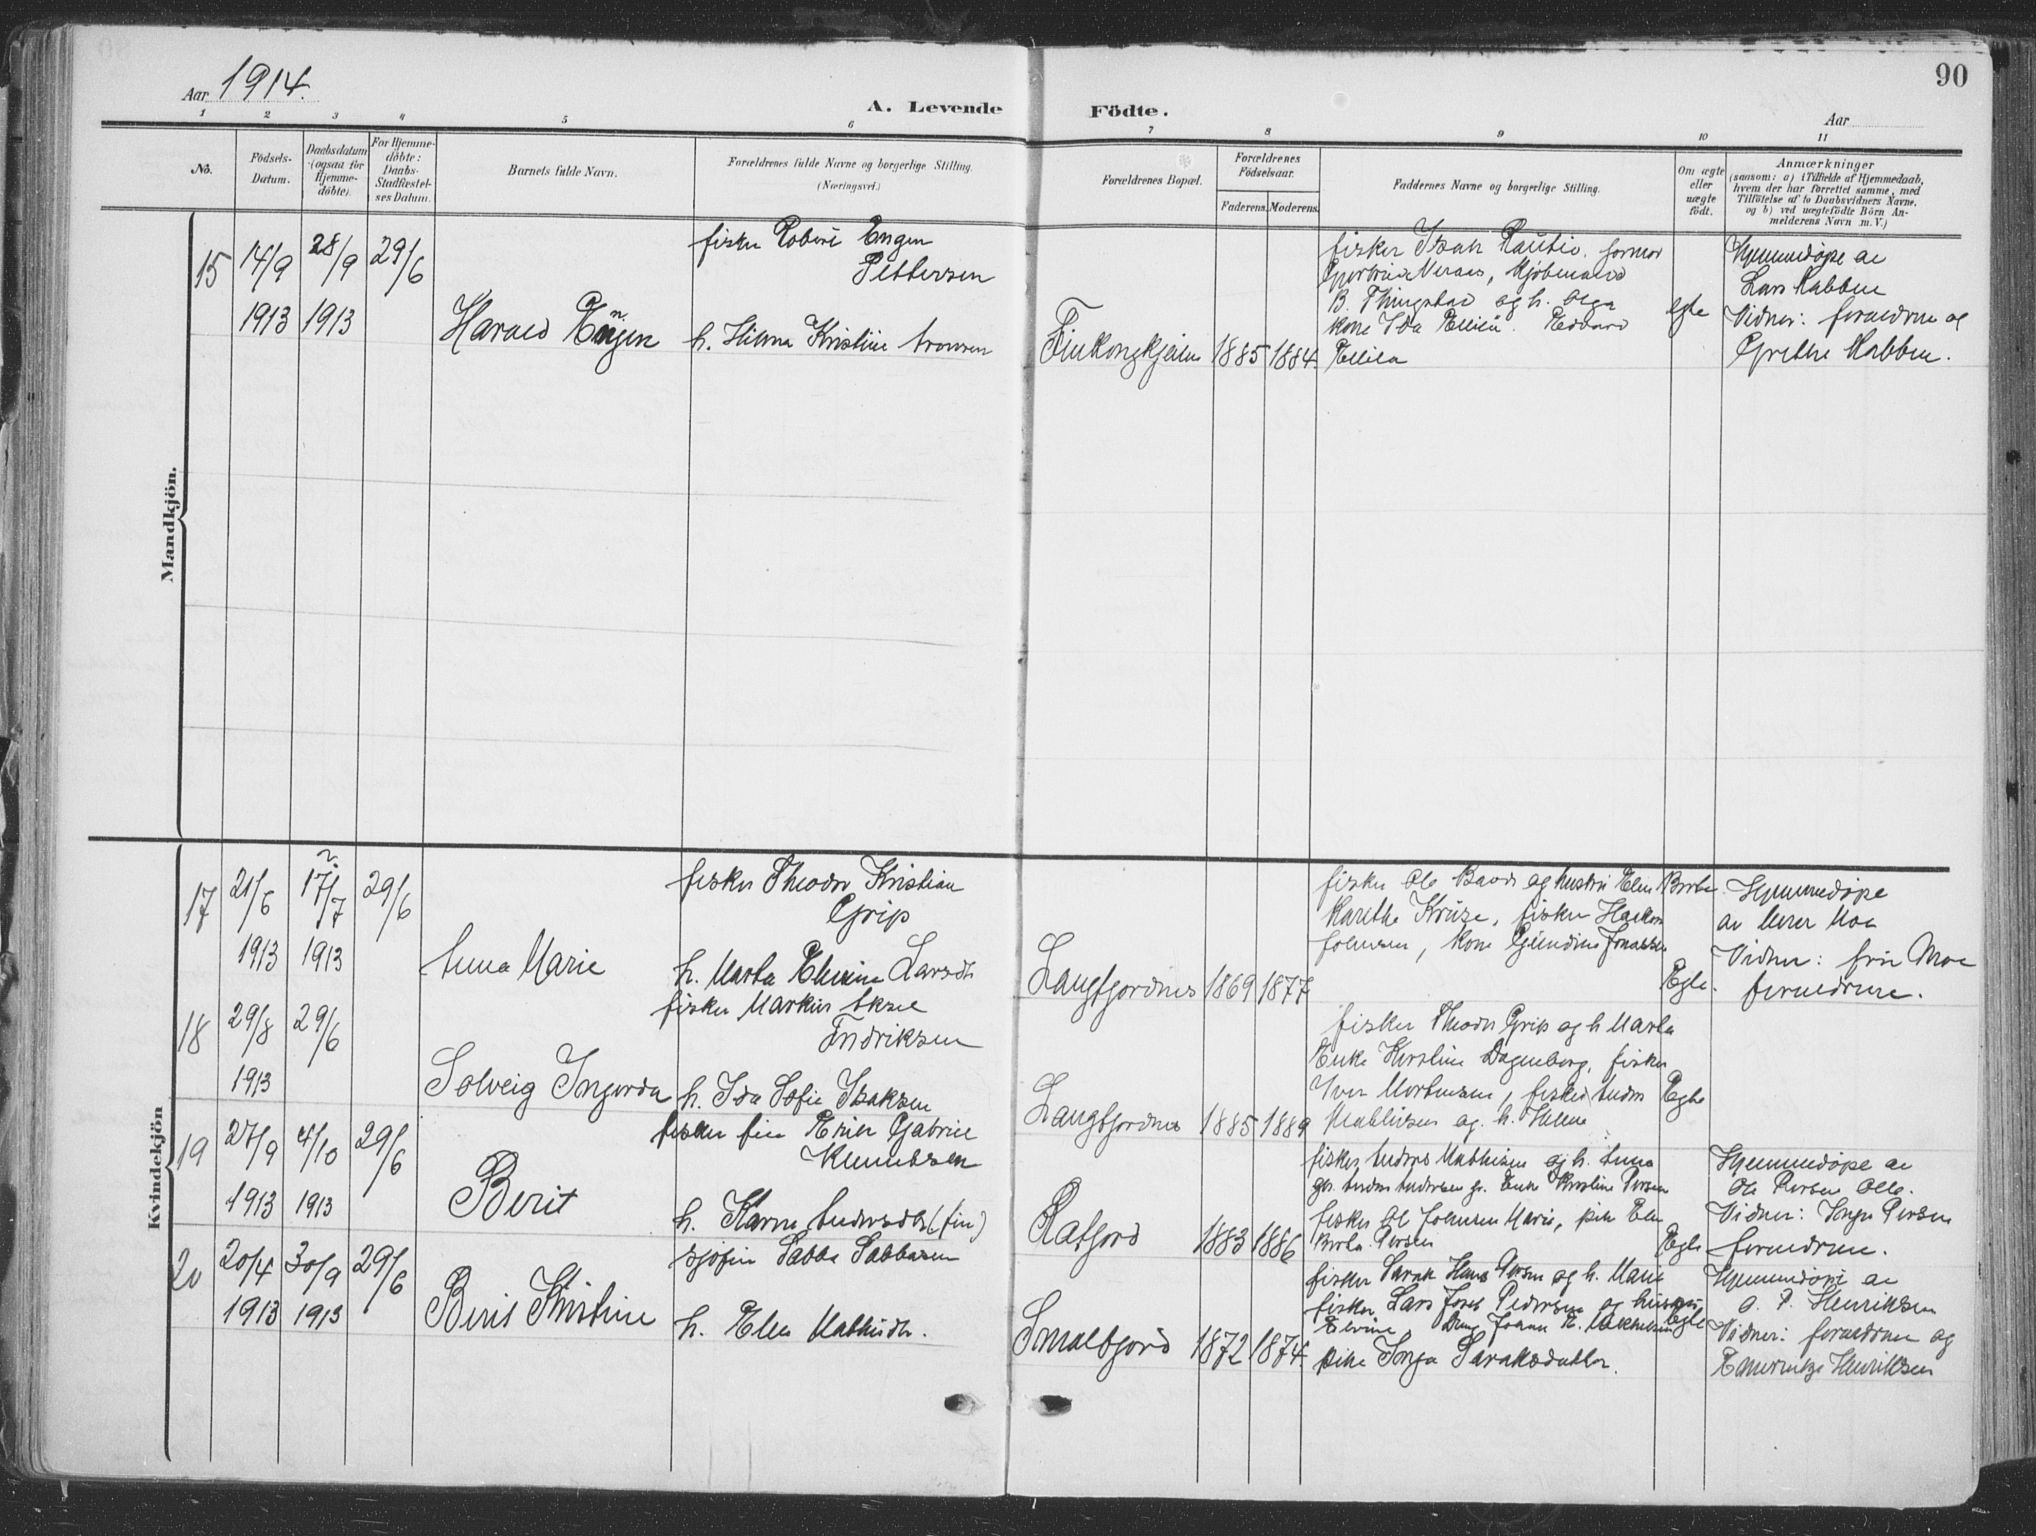 90
Aar 1914.
A. Levende Födte.
Aar
1 2 3 4 5 6 7 8 9 10 11
No.
Födsels-Datum.
Daabsdatum (ogsaa for Hjemme-döbte).
For Hjemme-döbte: Daabs-Stadfæstel-ses Datum.
Barnets fulde Navn.
Forældrenes fulde Navne og borgerlige Stilling. (Næringsvei.)
Forældrenes Bopæl.
Forældrenes Födselsaar.
Faderens. Moderens.
Faddernes Navne og borgerlige Stilling.
Om ægte eller uægte födt.
Anmærkninger
(saasom: a) i Tilfælde af Hjemmedaab,
hvem der har forrettet samme, med
Tilföielse af to Daabsvidners Navne.
og b) ved uægtefödte Börn An-
melderens Navn m. V.)
Mandkjön.
15 14/9 1913 28/9 1913 29/6
Harald Engen
fisker Robert Engen
Pettersen
h. Hilma Kristine
Finkongkjeilen 1885 1884.
fisker Isak Rautio.
B. Thingstad og h. Olga
kone Ida
Egte
Hjemmedøpt av
Lars Rabben
Vidner: foreldrene og
Grethe Rabben.
Kvindekjön
17 21/6 1913 17/7 1913 29/6
Anna Marie
fisker Theodor Kristian
Grip
h. Marta Larsdt
Langfjordnes 1869 1877
fisker Ole og hustru Elen
Marethe Kruse, fisker Haakon
Johnsen, kone Jonassen
Egte.
Hjemmedøpt
av lærer Moe
Vidner: fru Moe
foreldrene.
18 29/8 1913 29/6
Solveig Ingarda
fisker Markus Aksel
Fredriksen
h. Ida Sofie Isaksen
Langfjordnes 1885 1889
fisker Theodor Grip og h. Marta
Enke Kirstine Dagenborg, fisker
Iver Mortensen, fisker Anders
Mathisen og h. Helene
Egte
19 27/9 1913 4/10 1913 29/6
Berit
fisker fin Gabriel
Klemetsen
h. Karen Andersdtr (fin)
Ratfjord 1883 1886
fisker Anders Mathisen og h. Anna
Enke Kirstine Persen
fisker Ol Johnsen Marie, pike Elen
Persen
Egte
Hjemmedøpt av
Ole Persen
Vidner: Inga Persen
foreldrene.
20 20/4 1913 30/9 1913 29/6
Berit Kristine
sjøfin Sabba Sabbasen
h. Elen Mathisdtr.
Smalfjord 1872 1874
fisker Sarak Hans Persen og h. Marie
fisker Lars Josef Pedersen og hustru
pike Inga Saraksdatter.
Egte
Hjemmedøpt av
O. P. Henriksen
Vidner: foreldrene og
Henriksen